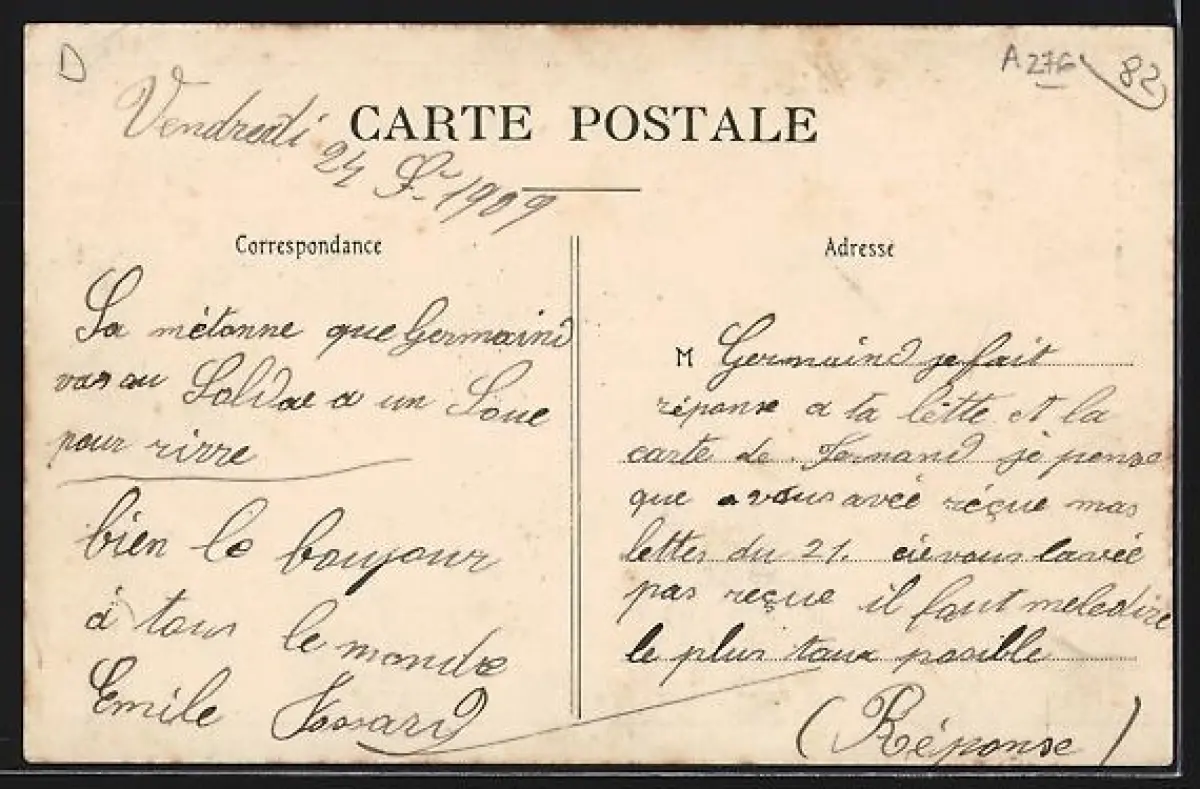 D
A276 82
CARTE POSTALE
Vendredi
24 1909
Correspondance
Sa métonne que Germaind
vas au Soldae a un Soue
pour rirre
bien le boujour
à tous le monde
Emile
Adresse
M Germaind je fait
réponse a ta lette et la
carte de Fernand je pense
que vous avée réçue mas
lettes du 21. cie vous lavée
pas reçue il faut meledire
le plus taux posible
(Réponse)